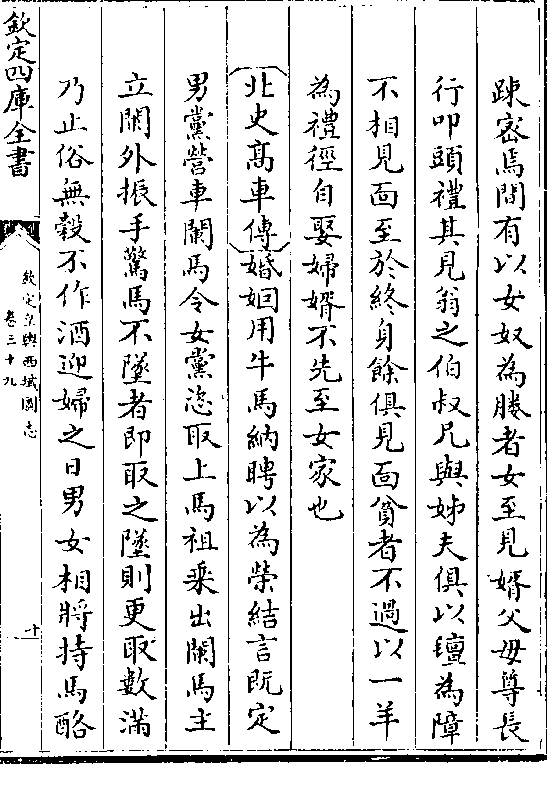 踈宻焉間有以女奴為媵者女至見婿父母尊長
行叩頭禮其見翁之伯叔兄與姊夫俱以氊為障
不相見面至於終身餘俱見面貧者不過以一羊
為禮徑自娶婦婿不先至女家也
北史髙車傳婚姻用牛馬納聘以為榮結言既定
男黨營車闌馬令女黨恣取上馬袒乘出闌馬主
立闌外振手驚馬不墜者即取之墜則更取數滿
乃止俗無穀不作酒迎婦之日男女相將持馬酪
欽定四庫全書
欽定皇輿西域圖志
卷三十九
十